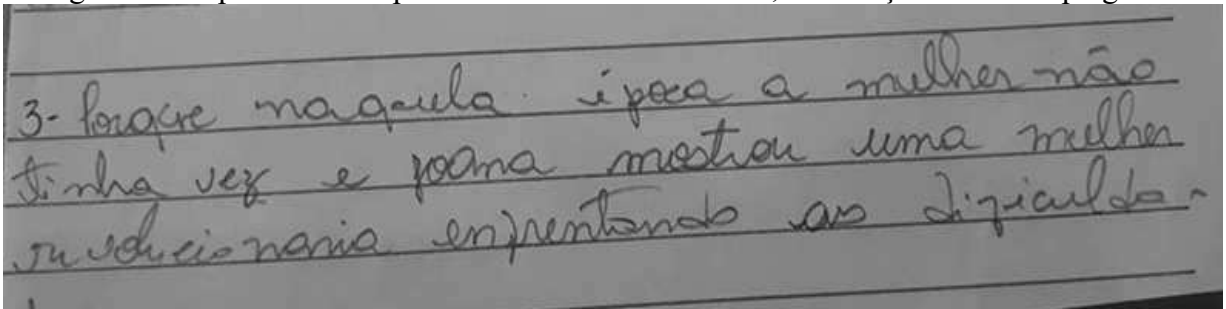 3- Porque naquela época a mulher não
tinha vez e joana mostrou uma mulher
revolucionaria enfrentando as dificulda-